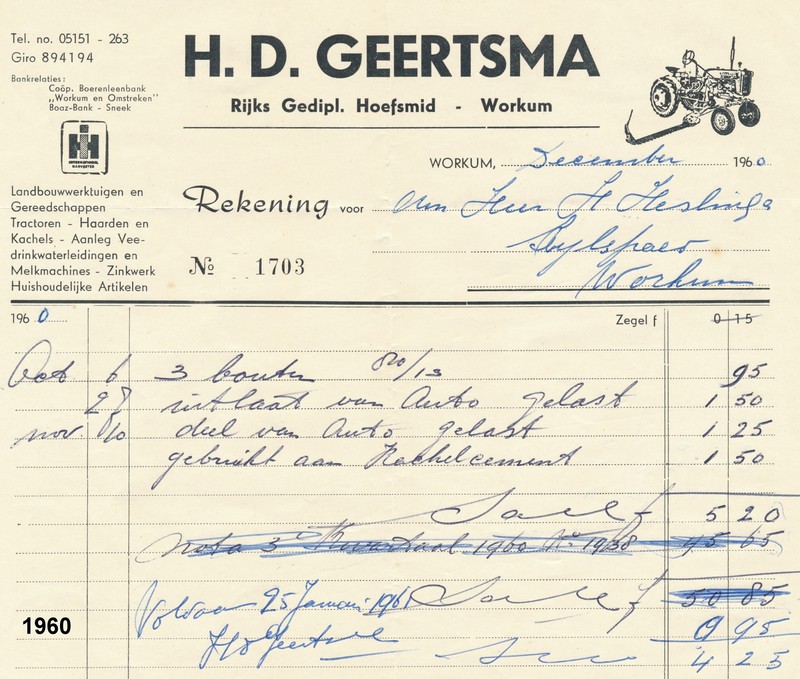 Tel. no. 05151 - 263
Giro 894194
Bankrelaties:
Coöp. Boerenleenbank
„Workum en Omstreken"
Boaz-Bank - Sneek
H. D. GEERTSMA
Rijks Gedipl. Hoefsmid - Workum
INTERNATIONAL
HARVESTER
WORKUM, December 1960
Landbouwwerktuigen en
Gereedschappen
Tractoren - Haarden en
Kachels - Aanleg Vee-
drinkwaterleidingen en
Melkmachines - Zinkwerk
Huishoudelijke Artikelen
Rekening voor den Heer H Heslinga
Workum
№ 1703
1960 Zegel f 0 15
Oct 6 3 bouten /13 95
27 uitlaat van Auto gelast 1 50
nov. deel van Auto gelast 1 25
gebruikt aan Kachelcement 1 50
Saelf 5 20
nota 3e Kwartaal 1960 No 45 65
Voldaan 25 Januari 1961 Saelf 50 85
HD Geertsma 0 95
4 25
1960